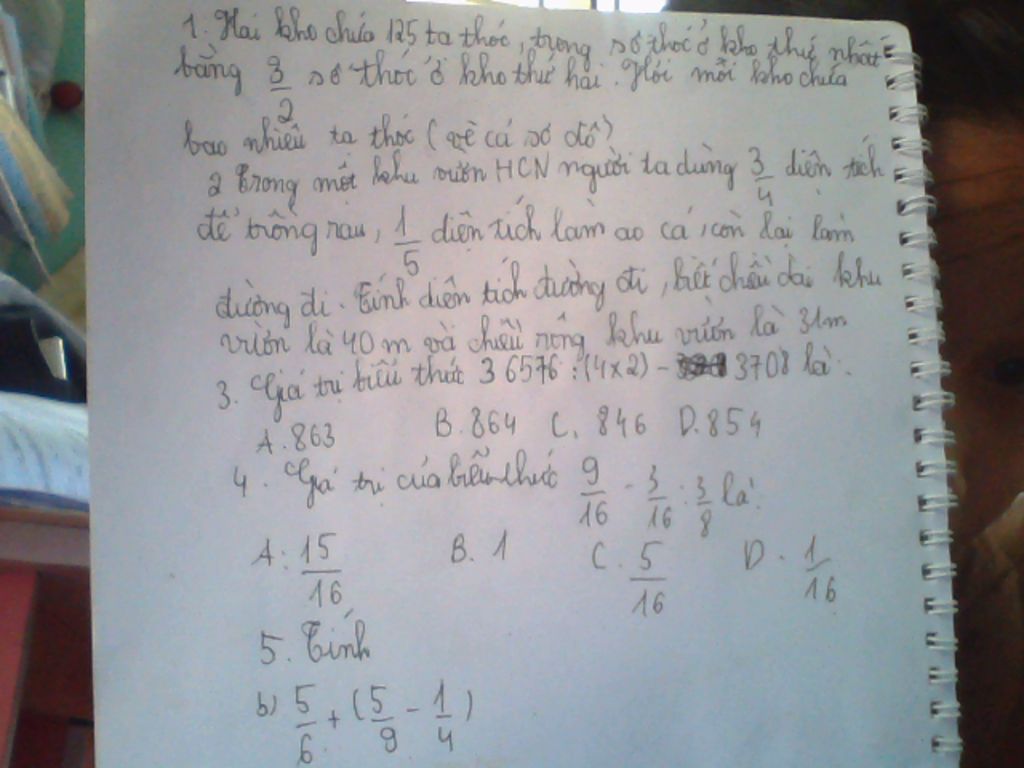 1. Hai kho chứa 125 tạ thóc, trong số thóc ở kho thứ nhất
bằng 3/2 số thóc ở kho thứ hai. Hỏi mỗi kho chứa
bao nhiêu tạ thóc (vẽ cả sơ đồ)
2 Trong một khu vườn HCN người ta dùng 3/4 diện tích
để trồng rau, 1/5 diện tích làm ao cá, còn lại làm
đường đi. Tính diện tích đường đi, biết chiều dài khu
vườn là 40 m và chiều rộng khu vườn là 31m
3. Giá trị biểu thức 36576 : (4x2) - 3708 là:
A. 863 B. 864 C. 846 D. 854
4. Giá trị của biểu thức 9/16 - 3/16 : 3/8 là:
A. 15/16 B. 1 C. 5/16 D. 1/16
5. Tính
b) 5/6 + (5/9 - 1/4)